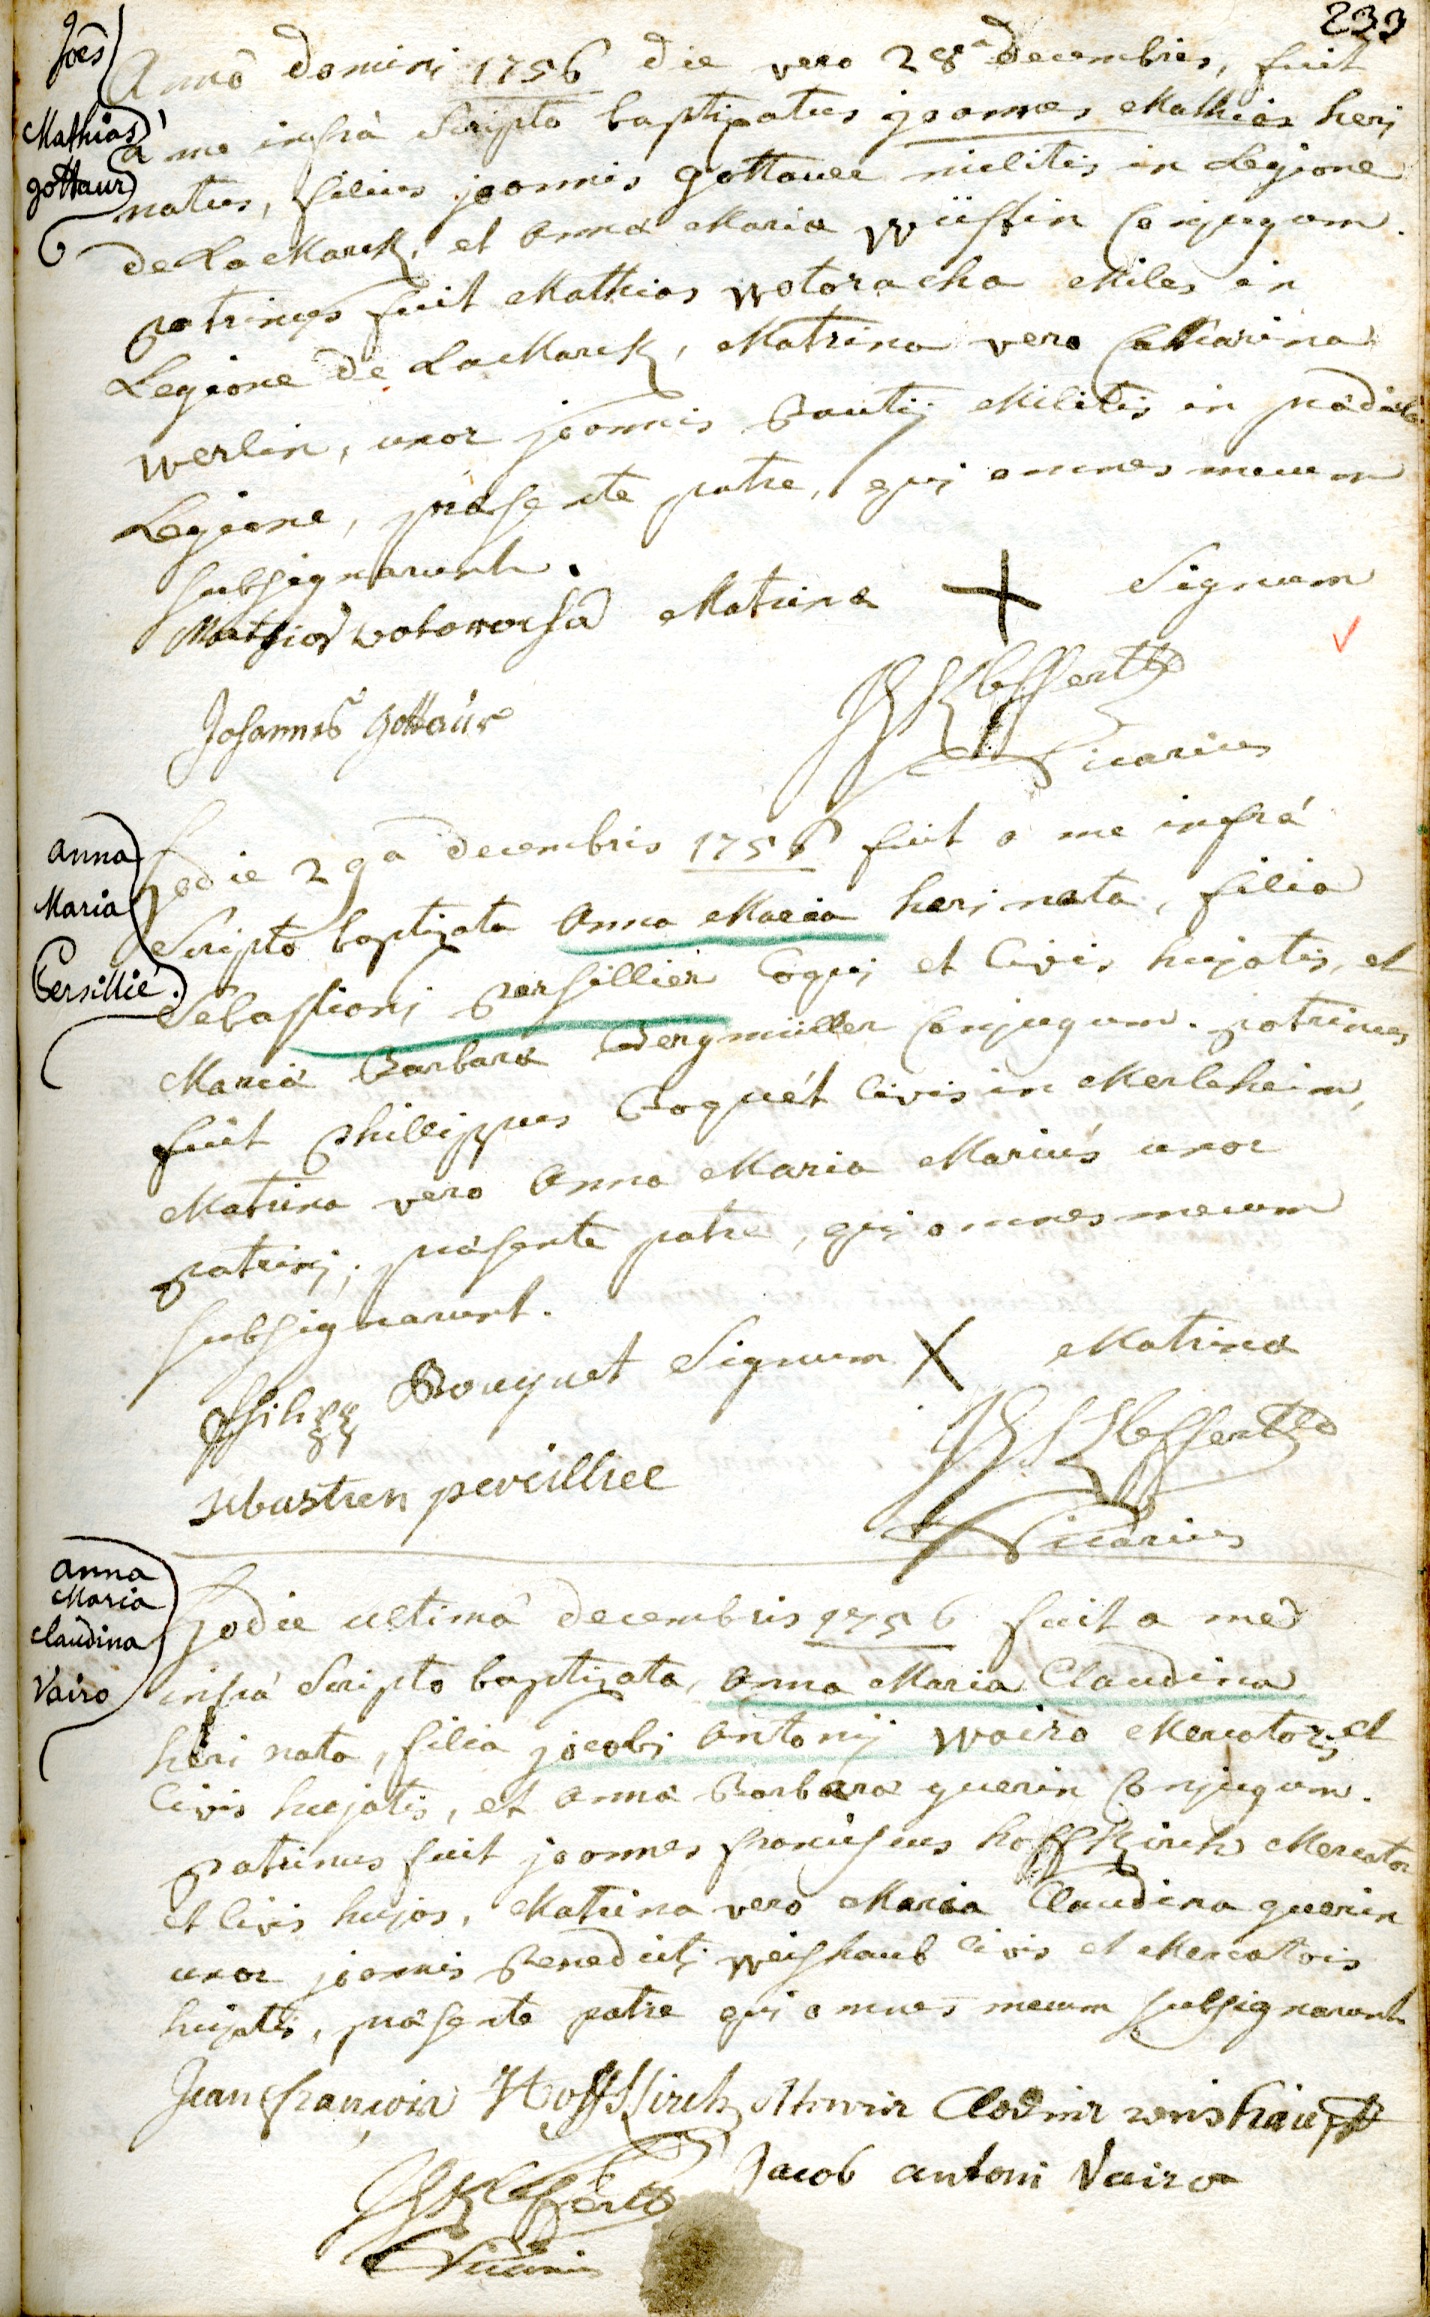 233
Joēs
Mathias
gottaur
Anno domini 1756 die vero 28a decembris, fuit
a me infrà Scripto baptizatus joannes Mathias heri
natus, filius joannis gottauer militis in Legione
de La Marck, et anna Maria wüstin Conjugum.
patrinus fuit Mathias wotoracha Miles in
Legione de La Marck, Matrina vero Catharina
werlin, uxor joannis Bautij Militis in prädicta
Legione, präsente patre, qui omnes mecum
subsignarunt.
Mathias Matrina + Signum
Johannes gottaur
Kleffert
Vicarius
anna
Maria
Persillié.
hodie 29a decembris 1756 fuit a me infrà
Scripto baptizata anna Maria heri nata, filia
Sebastiani Persillier Coqui et Civis hujatis, et
Maria Barbara Bergmüller Conjugum. patrinus
fuit Philippus Boquét Civis in Merleheim,
Matrina vero anna Maria Mariús uxor
patrini, präsente patre, qui omnes mecum
subsignarunt.
Philipp Bouquet Signum X Matrina
sebastien
Kleffert
Vicarius
anna
Maria
claudina
Vairo
hodie ultimâ decembris 1756 fuit a me
infrà Scripto baptizata, anna Maria Claudina
heri nata, filia jacobi antonij wairo Mercatoris et
Civis hujatis, et anna Barbara guerin Conjugum.
patrinus fuit joannes franciscus hoffkirch Mercator
et Civis hujas, Matrina vero Maria Claudina guerin
uxor joannis Benedicti weishaub Civis et Mercatoris
hujatis, präsente patre qui omnes mecum subsignarunt
Jean françois Hoffkirch
Jacob antoni Vairo
Kleffert
Vicarius